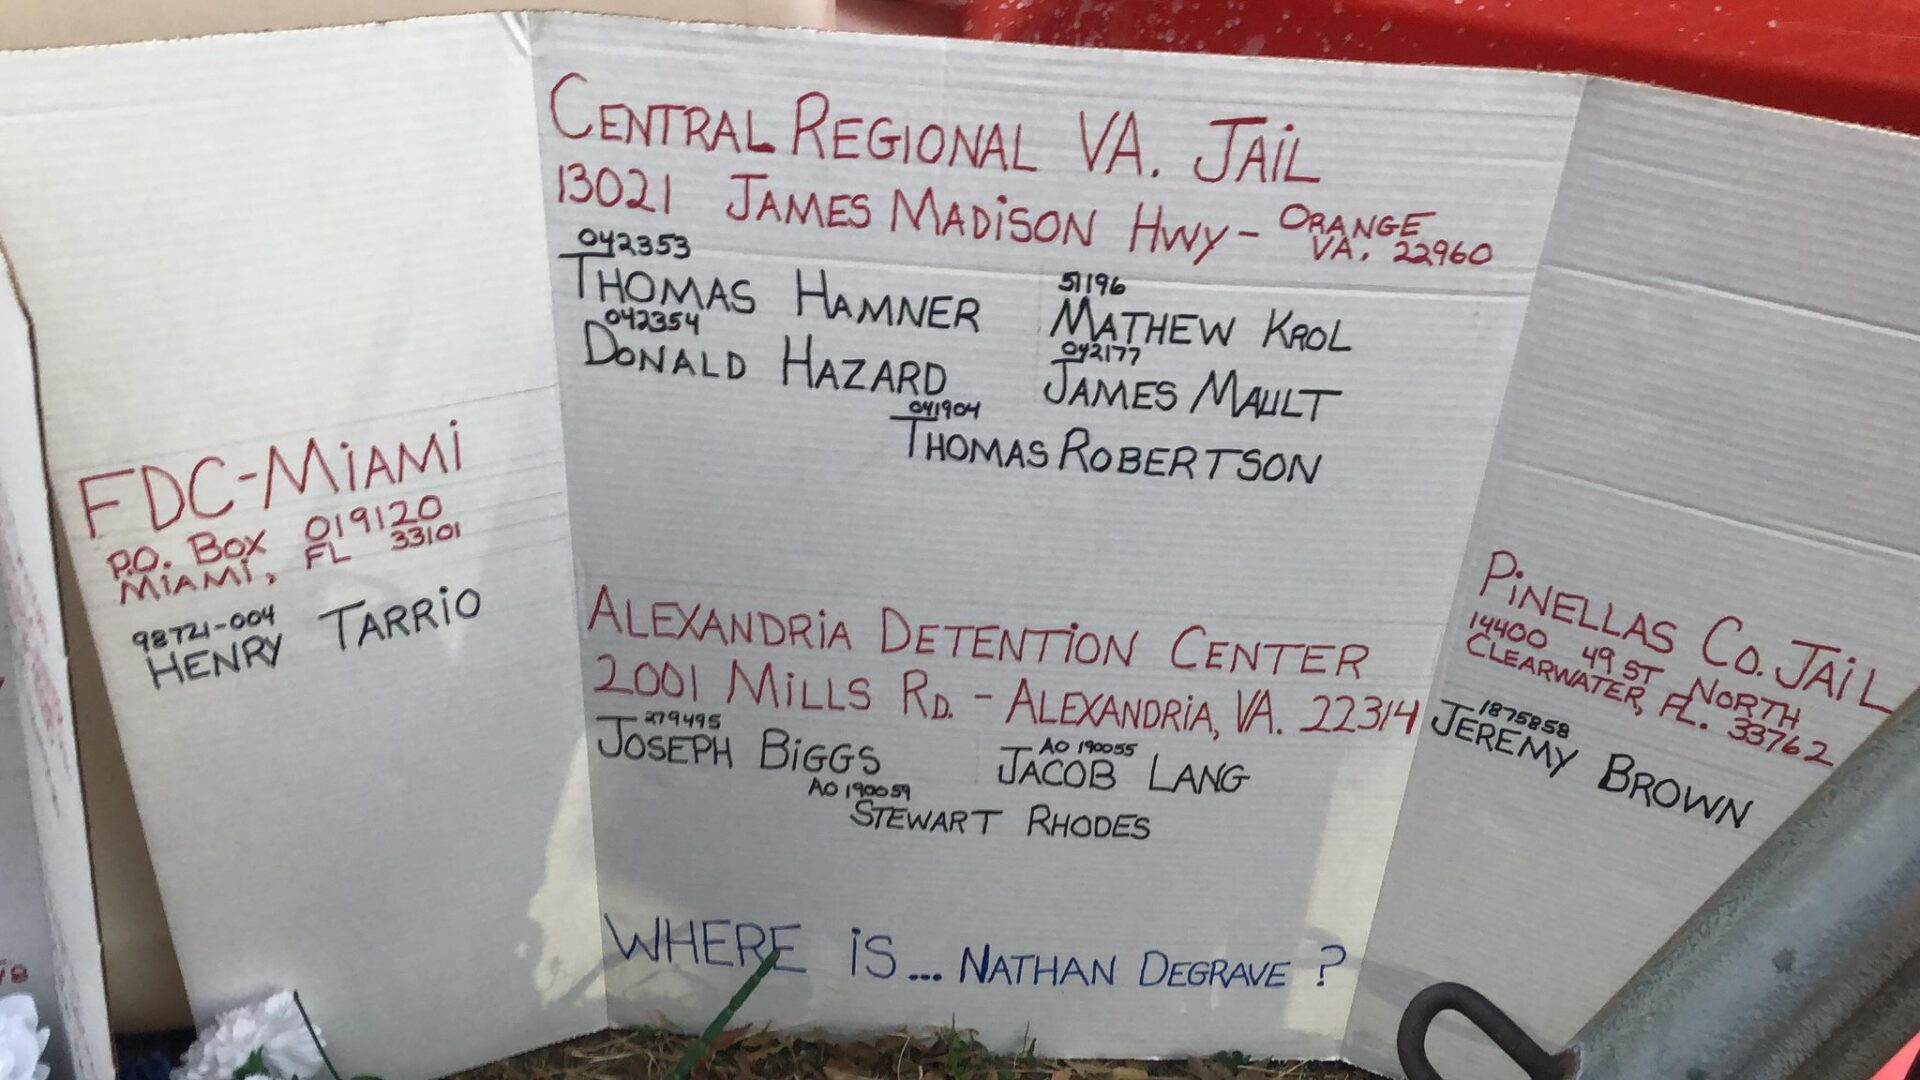 FDC-MIAMI
P.O. BOX 019120
MIAMI, FL 33101
98721-004
HENRY TARRIO
CENTRAL REGIONAL VA. JAIL
13021 JAMES MADISON HWY - ORANGE
VA. 22960
042353
THOMAS HAMNER
042354
DONALD HAZARD
51196
MATHEW KROL
042177
JAMES MAULT
041904
THOMAS ROBERTSON
ALEXANDRIA DETENTION CENTER
2001 MILLS RD. - ALEXANDRIA, VA. 22314
279495
JOSEPH BIGGS
AO 190055
JACOB LANG
AO 190059
STEWART RHODES
WHERE IS... NATHAN DEGRAVE ?
PINELLAS CO. JAIL
14400 49 ST NORTH
CLEARWATER, FL. 33762
1875858
JEREMY BROWN